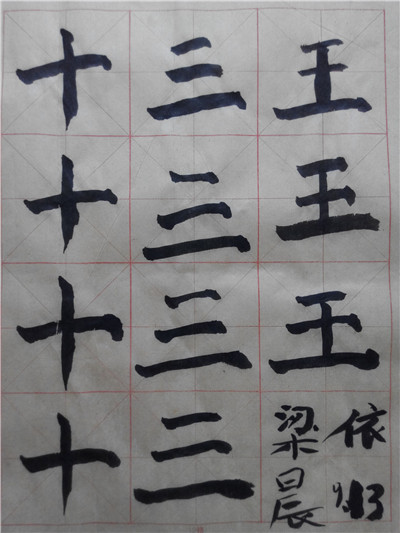 十十十十
三三三三
王王王
梁晨
依